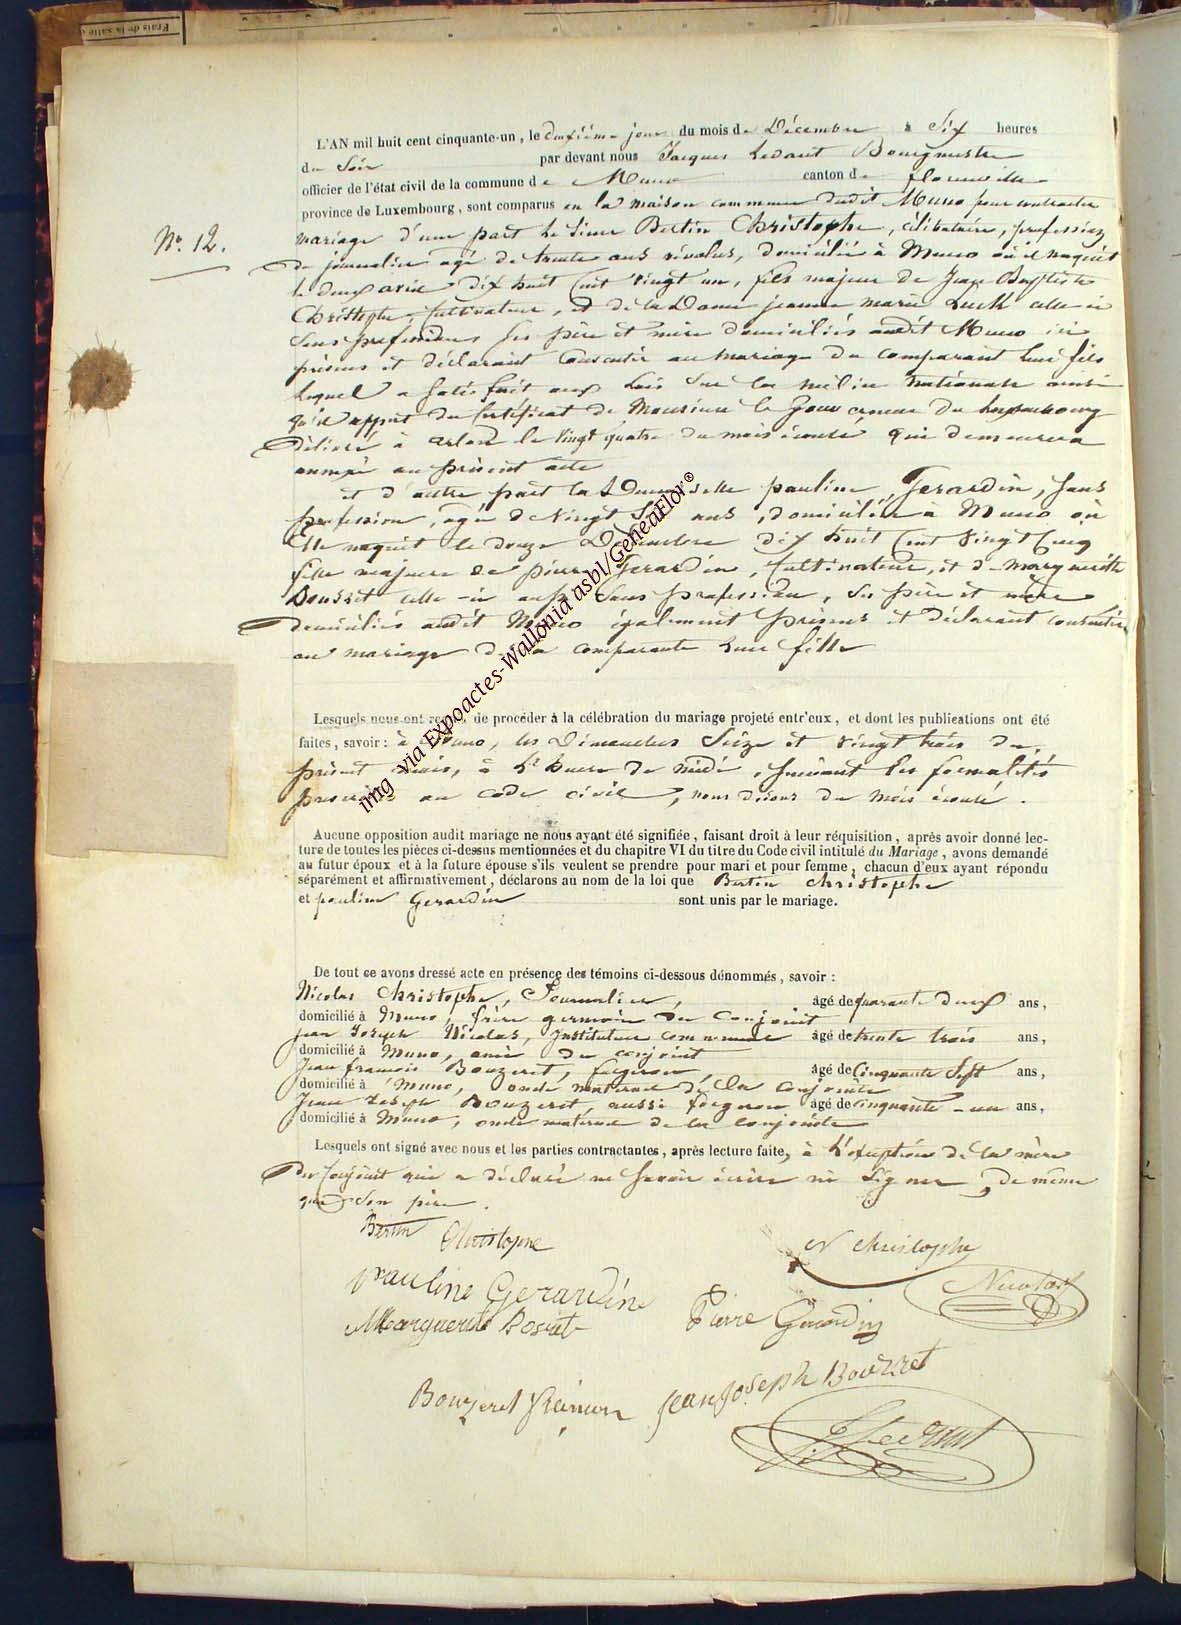 Frais de la salle
L'AN mil huit cent cinquante-un, le deuxième jour du mois de Décembre à Six heures
du Soir par devant nous Jacques Ledant Bourgmestre
officier de l'état civil de la commune de Muno canton de florenville
province de Luxembourg, sont comparus en la maison commune dudit Muno pour contracter
N° 12.
mariage d'une part le Sieur Bertin Christophe, célibataire, profession
de journalier agé de trente ans révolus, domicilié à Muno où il naquit
le deux avril dix huit Cent vingt un, fils majeur de Jean Baptiste
Christophe, Cultivateur, et de la Dame jeanne marie celle ci
Sans profession Ses père et mère domiciliés audit Muno ici
présens et déclarant Consentir au mariage du comparant leur fils
lequel a Satisfait aux Lois Sur la milice Nationale ainsi
qu'il appert du Certificat de Monsieur le Gouverneur du Luxembourg
Délivré à arlon le Vingt quatre du mois écoulé, qui demeurera
annexé au présent acte
et d'autre part la Demoiselle pauline Gerardin, Sans
profession, agée de Vingt Six ans, domiciliée à Muno où
Elle naquit le douze Décembre dix huit Cent Vingt Cinq
fille majeure de pierre Gerardin, Cultivateur, et de Margueritte
celle-ci aussi Sans profession, Ses père et mère
domiciliés audit Muno également présens et déclarant Consentir
au mariage de la comparante leur fille
Lesquels nous ont requis de procéder à la célébration du mariage projeté entr'eux, et dont les publications ont été
faites, savoir : à Muno, les Dimanches Seize et vingt trois du
présent mois, à l'heure de midi, Suivant les formalités
prescrites au code civil, nous disons du mois écoulé.
Aucune opposition audit mariage ne nous ayant été signifiée, faisant droit à leur réquisition, après avoir donné lec-
ture de toutes les pièces ci-dessus mentionnées et du chapitre VI du titre du Code civil intitulé du Mariage, avons demandé
au futur époux et à la future épouse s'ils veulent se prendre pour mari et pour femme, chacun d'eux ayant répondu
séparément et affirmativement, déclarons au nom de la loi que Bertin Christophe
et pauline Gerardin sont unis par le mariage.
De tout ce avons dressé acte en présence des témoins ci-dessous dénommés, savoir :
Nicolas Christophe, Journalier, âgé de quarante deux ans,
domicilié à Muno, frère germain du Conjoint
jean Joseph Nicolas, Instituteur communal âgé de trente trois ans,
domicilié à Muno, ami du conjoint
Jean françois Bouzeret, forgeron, âgé de Cinquante Sept ans,
domicilié à Muno, oncle maternel de la Conjointe
Jean Joseph Bouzeret, aussi forgeron âgé de cinquante-un ans,
domicilié à Muno, oncle maternel de la conjointe
Lesquels ont signé avec nous et les parties contractantes, après lecture faite, à l'exception de la mère
du Conjoint qui a déclaré ne Savoir écrire ni Signer, de même
que Son père.
Bertin Christophe
N Christophe
pauline Gerardine
Nicolas
Marguerite
Pierre Gerardin
Bouzeret
Jean Joseph Bouzret
Ledant
img via Expoactes-Wallonia asbl/GeneaFlor©